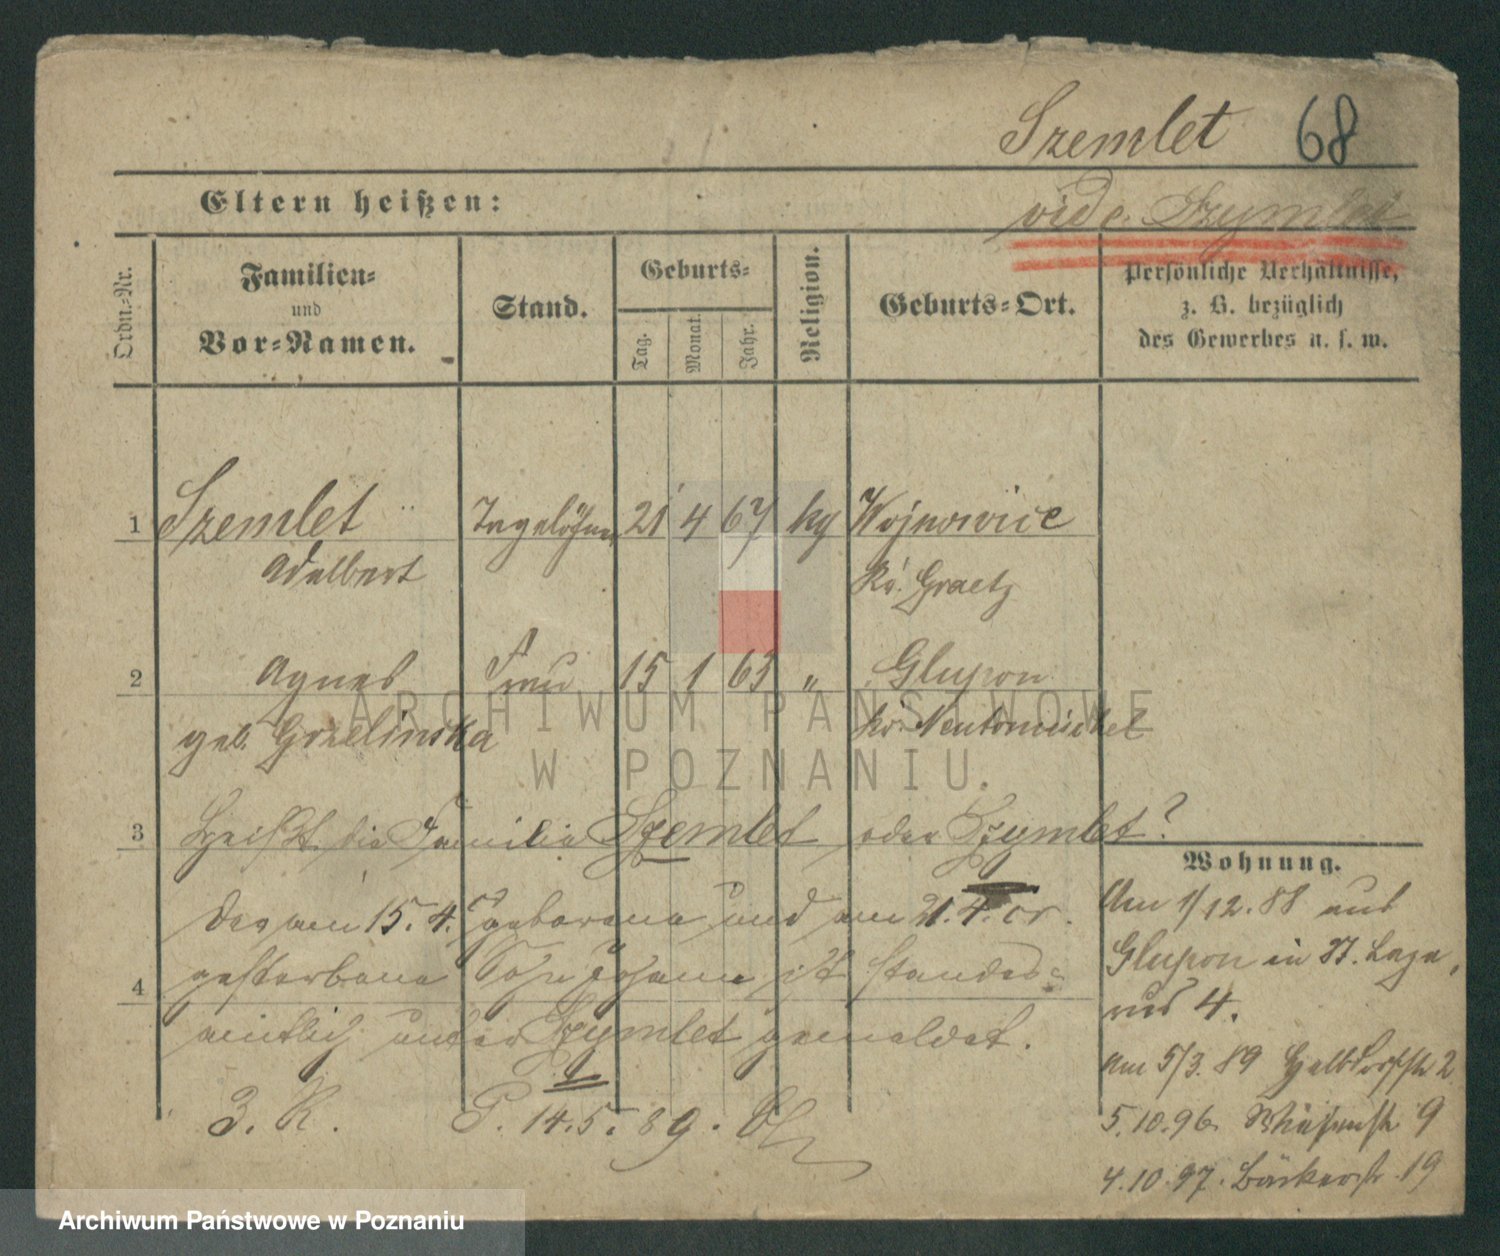 Szemlet 68
Eltern heißen:
vide. Szymlet
Ordn.-Nr.
Familien-
und
Vor-Namen.
Stand.
Geburts-
Tag.
Monat.
Jahr.
Religion.
Geburts-Ort.
Persönliche Verhältnisse,
z. B. bezüglich
des Gewerbes u. s. w.
1 Szemlet Tagelöhner 21 4 67 kg Wojnowice
Adalbert Kr. Graetz
2 Agnes Frau 15 1 63 " Glupon
geb. Grzelinska Kr. Neutomischel
3 Heißt die Familie Szemlet oder Szymlet?
Der am 15. 4. geborene und am 21. 4. cr.
4 gestorbene Sohn Johann ist standes-
amtlich unter Szymlet gemeldet.
3. R. P. 14. 5. 89.
Wohnung.
Am 1/12. 88 aus
Glupon in St. Laza-
rus 4.
am 5/3. 89 Halbdorfstr 2
5. 10. 96 Wiesenstr 9
4. 10. 97. Bäckerstr. 19
ARCHIWUM PAŃSTWOWE
W POZNANIU
Archiwum Państwowe w Poznaniu